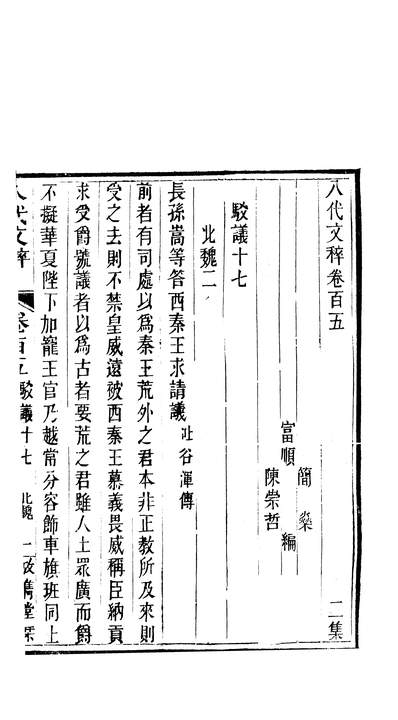 八代文稡卷百五
二集
富順
簡燊
陳崇哲
編
駁議十七
北魏二
長孫嵩等答西秦王求請議 吐谷渾傳
前者有司處以爲秦王荒外之君本非正教所及來則
受之去則不禁皇威遠被西秦王慕義畏威稱臣納貢
求受爵號議者以爲古者要荒之君雖人土眾廣而爵
不擬華夏陛下加寵王官乃越常分容飾車旗班同上
八代文稡 卷百五 駁議十七 北魏 二